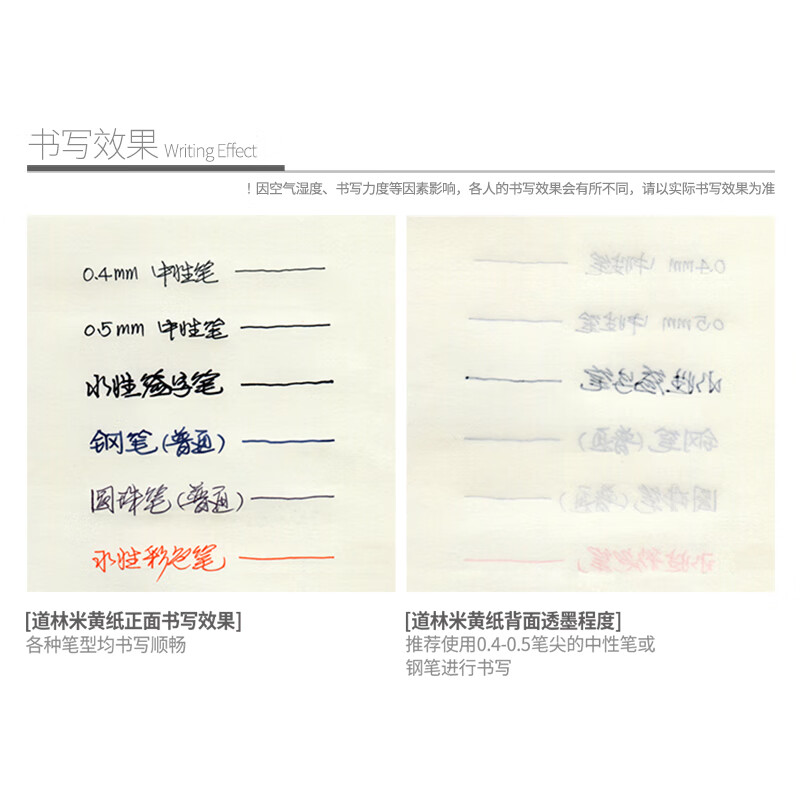 书写效果 Writing Effect
！因空气湿度、书写力度等因素影响，各人的书写效果会有所不同，请以实际书写效果为准
0.4mm 中性笔
0.5mm 中性笔
水性签字笔
钢笔（普通）
圆珠笔（普通）
水性彩色笔
0.4mm 中性笔
0.5mm 中性笔
水性签字笔
钢笔（普通）
圆珠笔（普通）
水性彩色笔
[道林米黄纸正面书写效果]
各种笔型均书写顺畅
[道林米黄纸背面透墨程度]
推荐使用0.4-0.5笔尖的中性笔或
钢笔进行书写